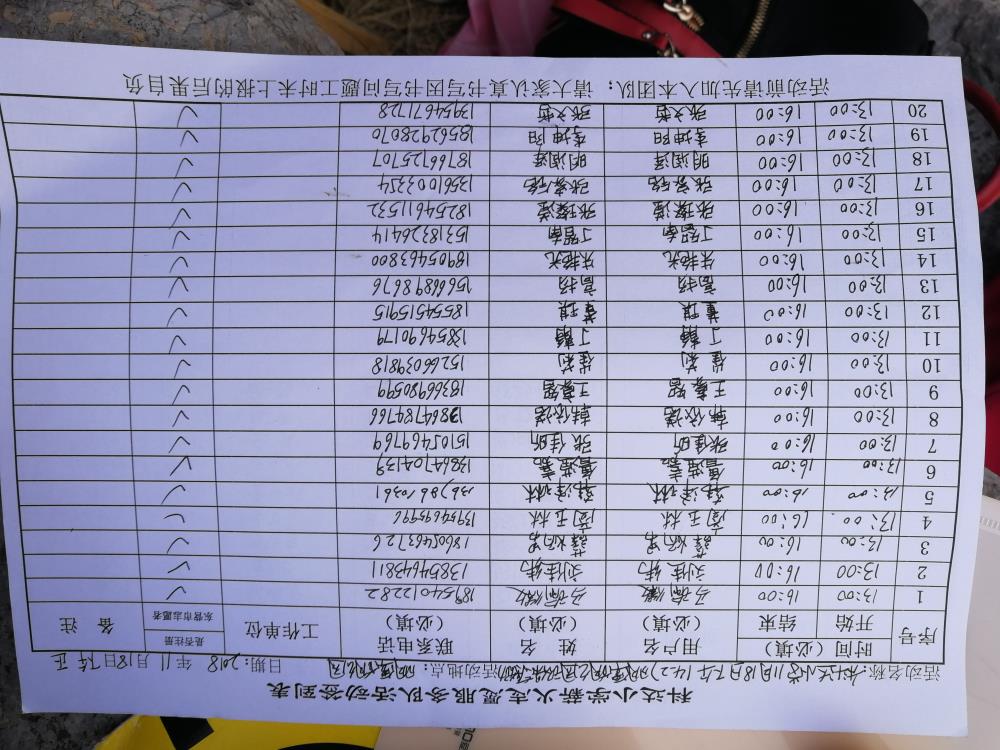 科达小学薪火志愿服务队活动签到表
活动名称：科达小学11月18日下午 活动地点： 日期：2018年11月18日下午
序号 时间（必填） 用户名（必填） 姓名（必填） 联系电话（必填） 工作单位 是否注册东营市志愿者 备注
开始 结束
1 13:00 16:00 18954012282 ✓
2 13:00 16:00 刘佳纬 刘佳纬 13854643811 ✓
3 13:00 16:00 18605463726 ✓
4 13:00 16:00 商玉林 商玉林 1395469599 ✓
5 13:00 16:00 韩泽林 韩泽林 ✓
6 13:00 16:00 13864704139 ✓
7 13:00 16:00 张佳昕 张佳昕 15105469769 ✓
8 13:00 16:00 韩依诺 韩依诺 13864784766 ✓
9 13:00 16:00 王嘉智 王嘉智 18366980599 ✓
10 13:00 16:00 崔莉 崔莉 15266039818 ✓
11 13:00 16:00 丁翰 丁翰 13854690179 ✓
12 13:00 16:00 董琪 董琪 18554515915 ✓
13 13:00 16:00 高扬 高扬 15668898676 ✓
14 13:00 16:00 朱艳光 朱艳光 18905463800 ✓
15 13:00 16:00 丁韶南 丁韶南 15318326414 ✓
16 13:00 16:00 张璨滢 张璨滢 18254611532 ✓
17 13:00 16:00 张家铭 张家铭 13561003354 ✓
18 13:00 16:00 明润泽 明润泽 18766125707 ✓
19 13:00 16:00 李坤阳 李坤阳 18562928070 ✓
20 13:00 16:00 张文哲 张文哲 13954671728 ✓
活动前请先加入本团队； 请大家认真书写因书写问题工时未上报的后果自负